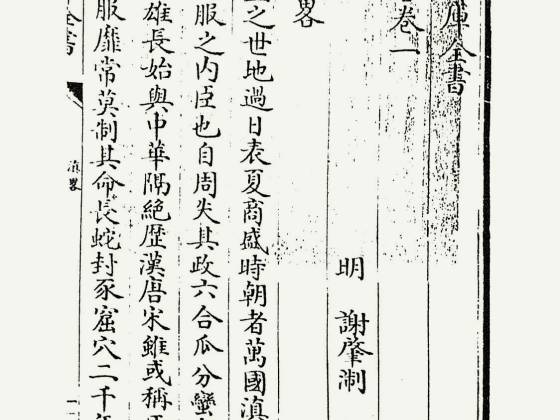 庫全書
卷一
明 謝肇淛
略
之世地過日表夏商盛時朝者萬國滇
服之内臣也自周失其政六合瓜分蠻
雄長始與中華隔絶歴漢唐宋雖或稱
服靡常莫制其命長蛇封豕窟穴二千年
全書
滇畧